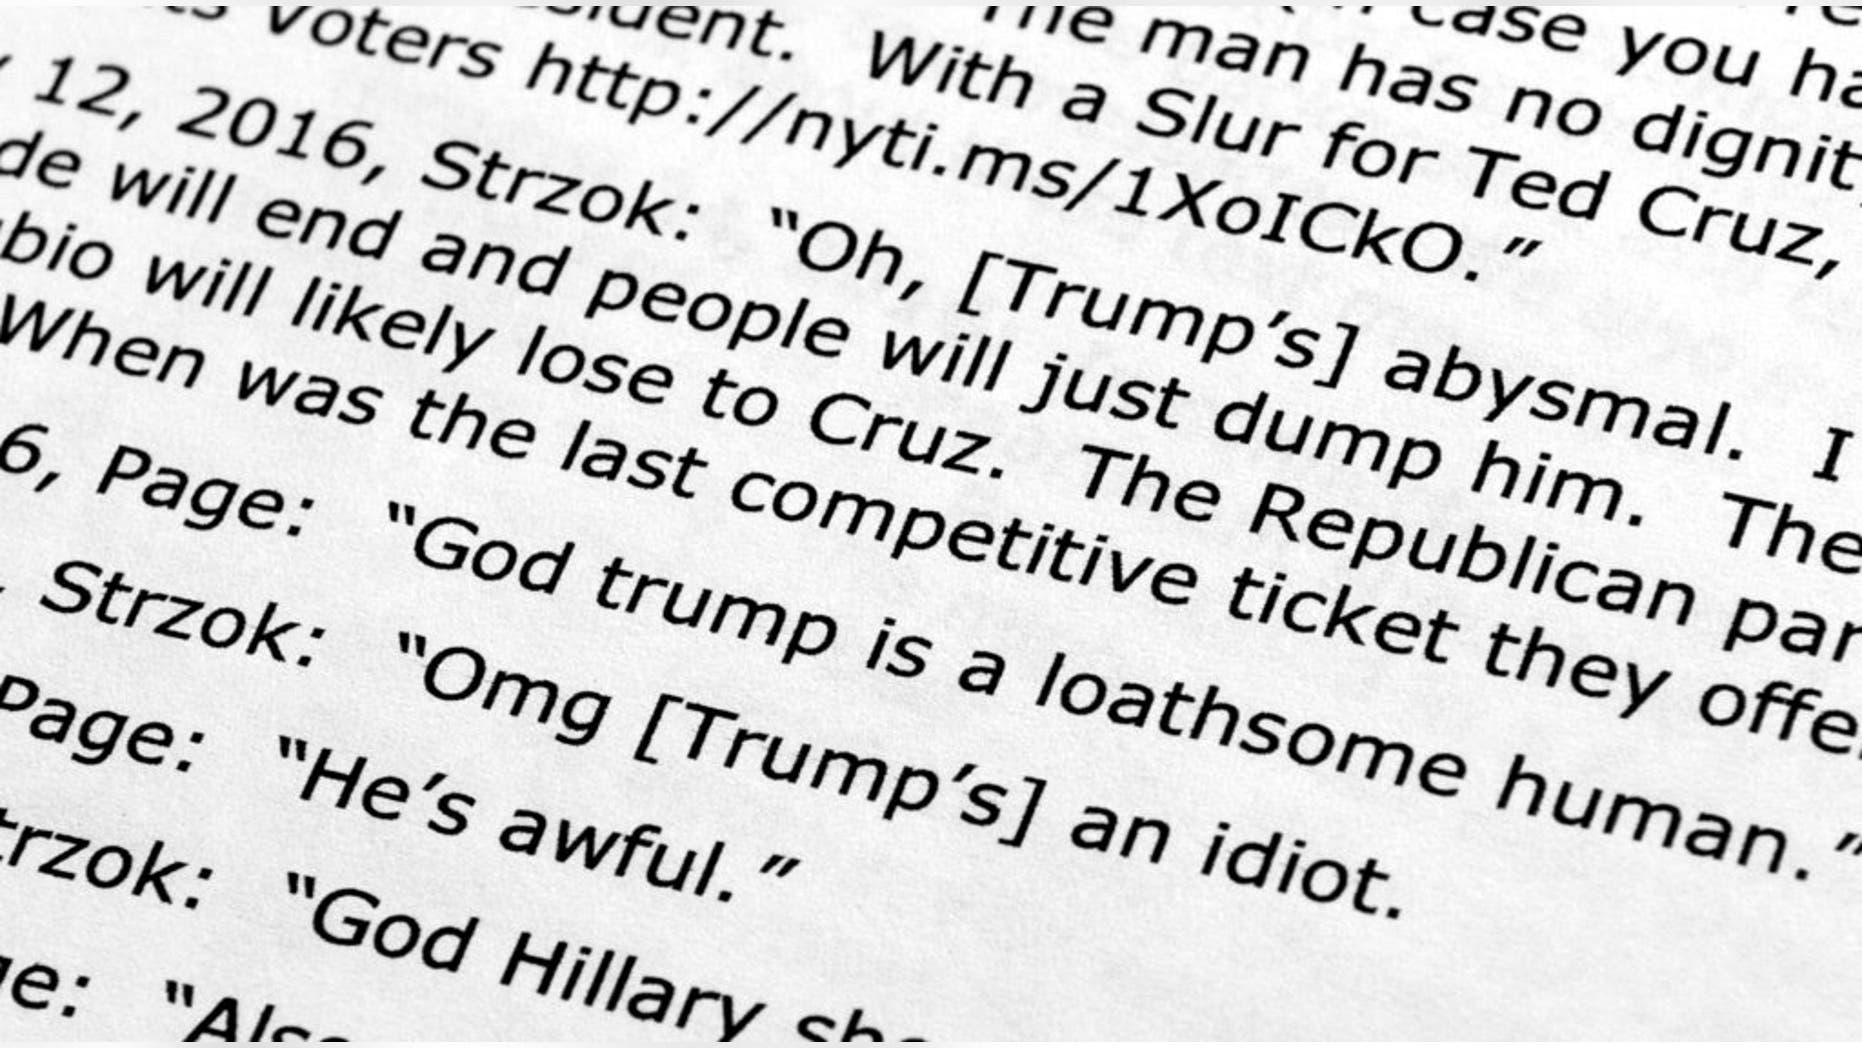 case you ha
The man has no dignit
sident. With a Slur for Ted Cruz,
ts Voters http://nyti.ms/1XoICkO.”
12, 2016, Strzok: “Oh, [Trump’s] abysmal. I
de will end and people will just dump him. The
bio will likely lose to Cruz. The Republican par
When was the last competitive ticket they offe
6, Page: “God trump is a loathsome human.”
Strzok: “Omg [Trump’s] an idiot.
Page: “He’s awful.”
trzok: “God Hillary sho
ge: “Also